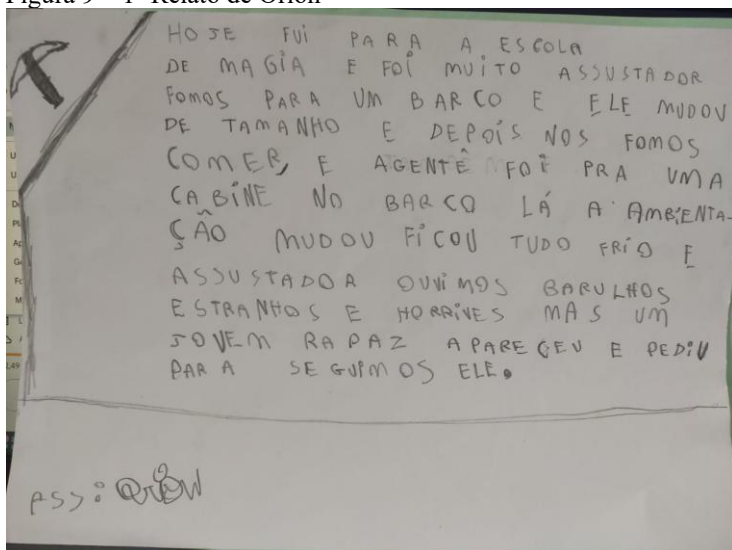 HOJE FUI PARA A ESCOLA
DE MAGIA E FOI MUITO ASSUSTADOR
FOMOS PARA UM BARCO E ELE MUDOU
DE TAMANHO E DEPOIS NOS FOMOS
COMER, E AGENTÊ FOI PRA UMA
CABINE NO BARCO LÁ A AMBIENTA-
ÇÃO MUDOU FICOU TUDO FRÍO E
ASSUSTADOA OUVIMOS BARULHOS
ESTRANHOS E HORRIVES MAS UM
JOVEM RAPAZ APAREÇEU E PEDIU
PARA SEGUIMOS ELE.
ASS: ORÍON